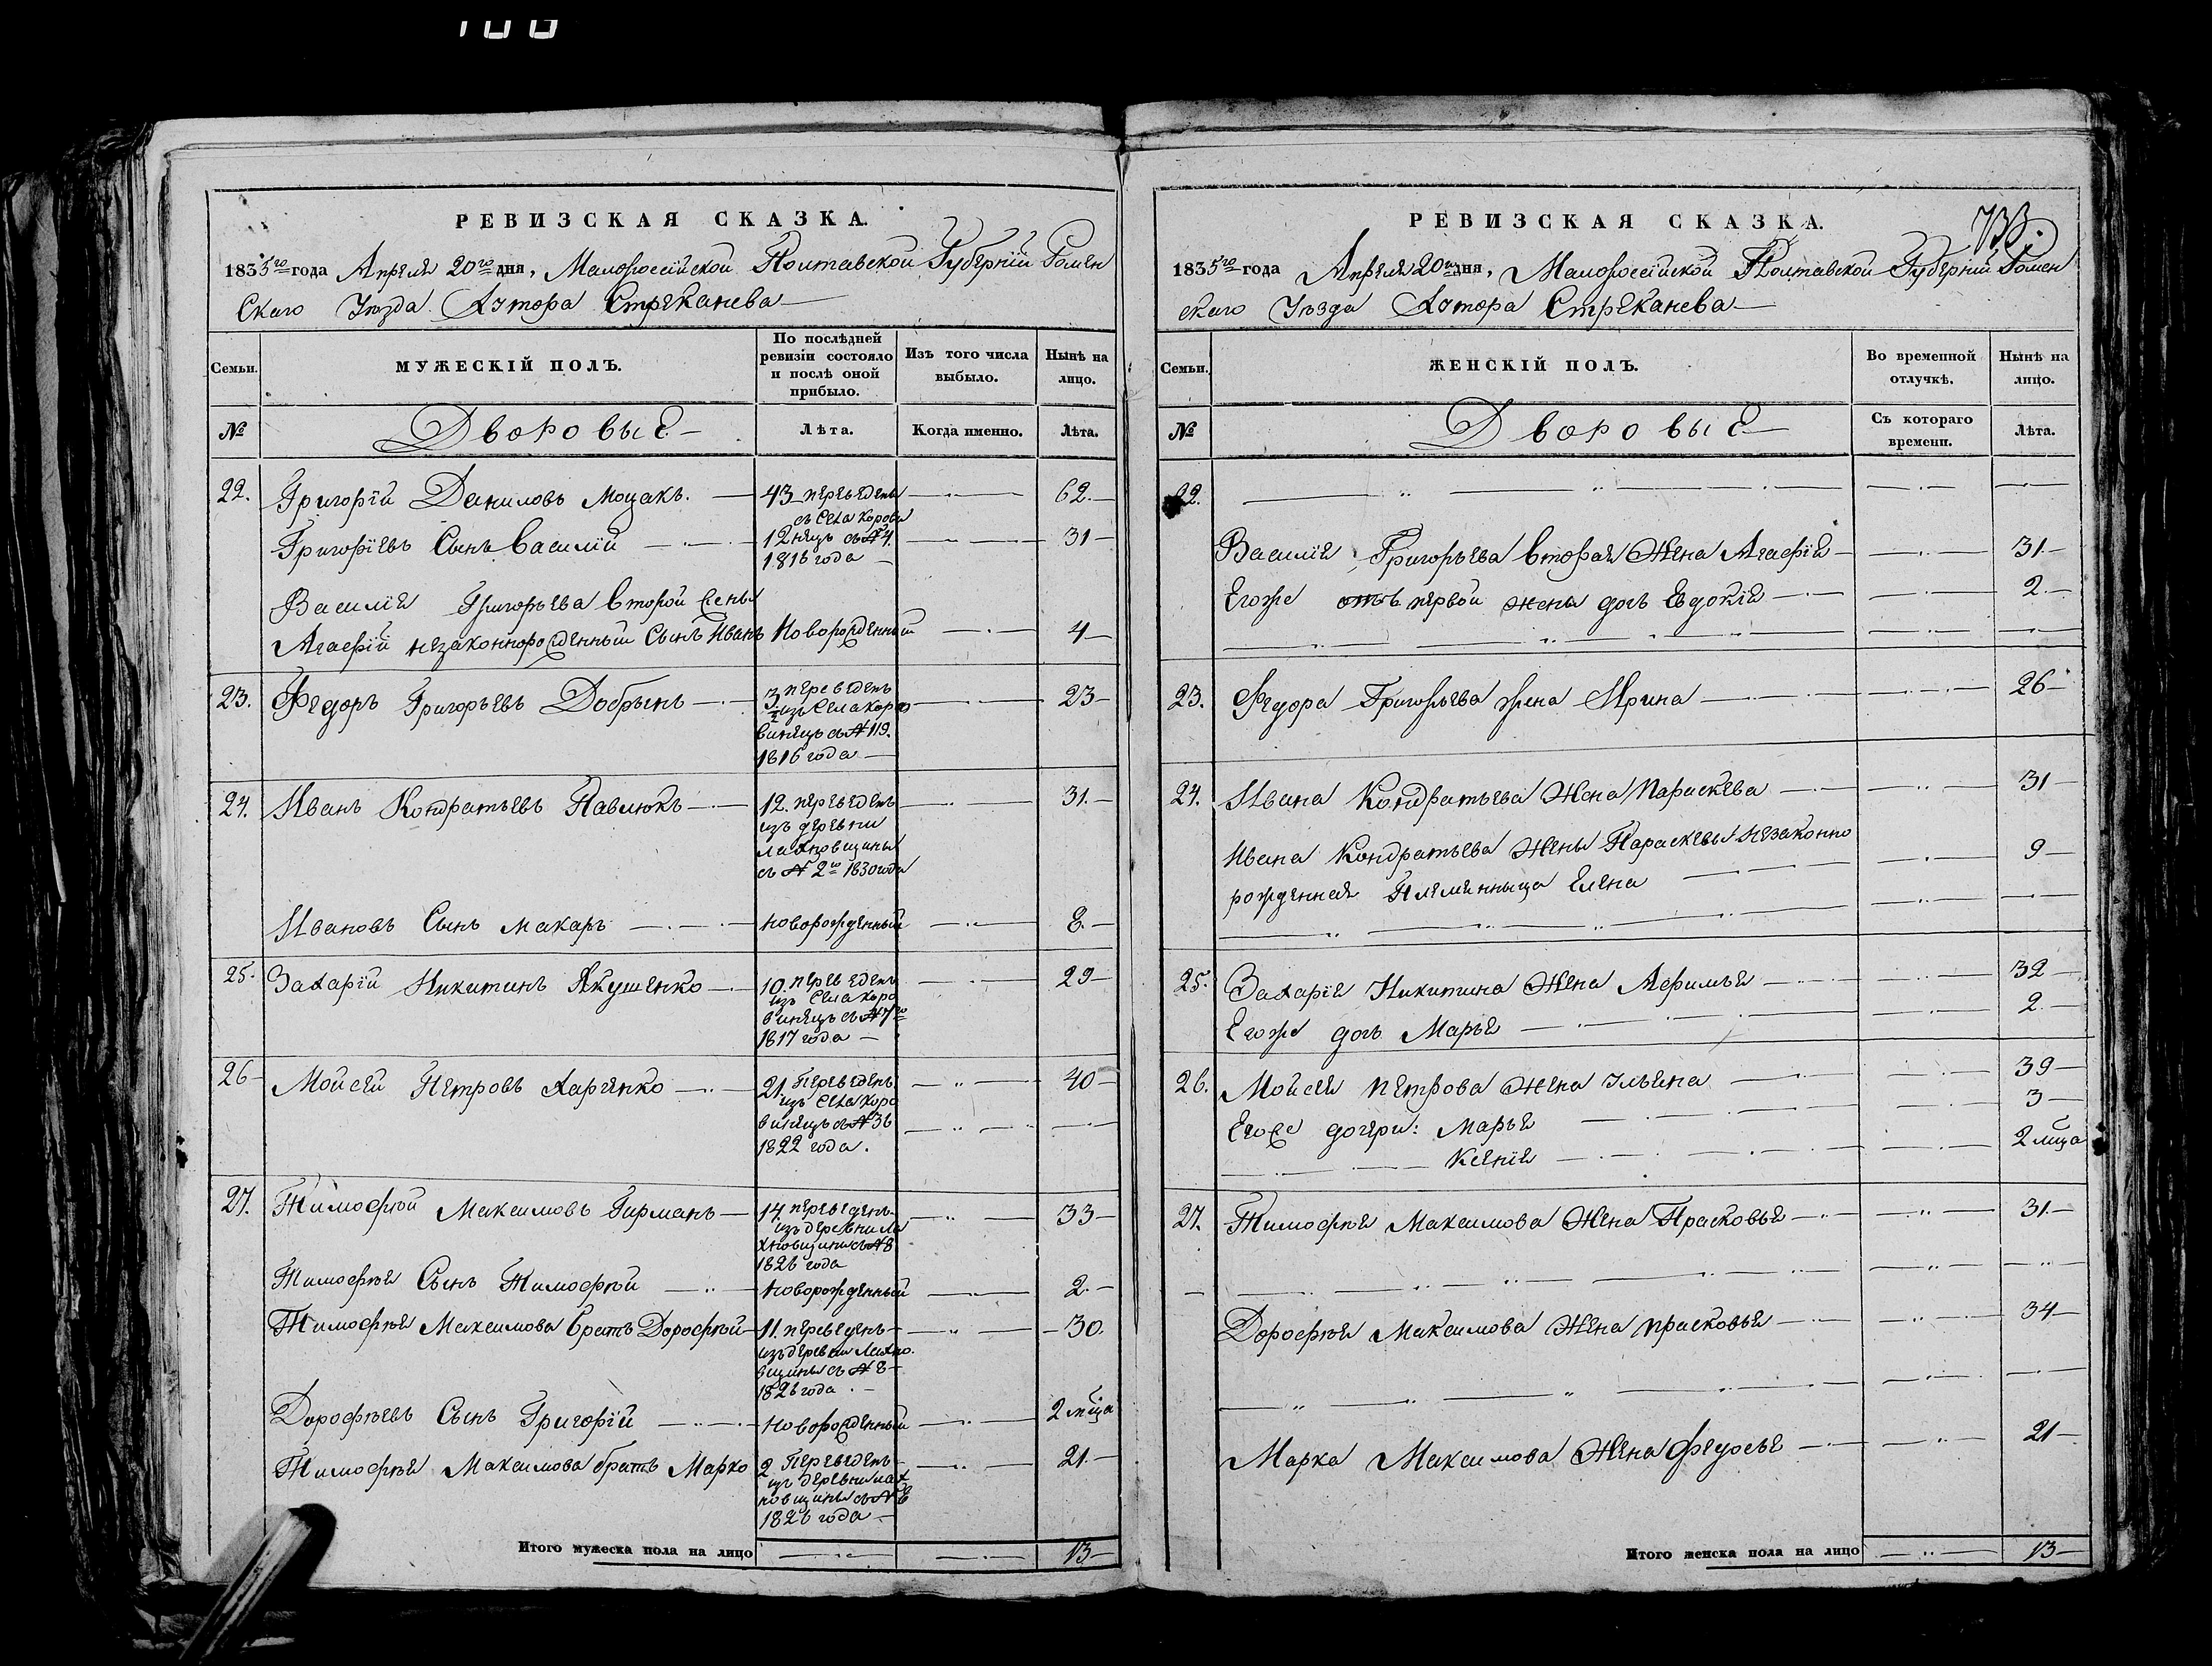 РЕВИЗСКАЯ СКАЗКА.
1835го года Апреля 20го дня, Малоросссійской Полтавской Губерніи Ромен
скаго Уѣзда Хутора Стреканева
Семьи.
МУЖЕСКІЙ ПОЛЪ.
По послѣдней
ревизіи состояло
и послѣ оной
прибыло.
Изъ того числа
выбыло.
Нынѣ на
лицо.
№
Дворовые
Лѣта.
Когда именно.
Лѣта.
22. Григорій Даниловъ Моцакъ. 43 переведенъ 62.
съ Села Корови
Григорїевъ Сынъ Василій 12 нецъ съ № 4. 31
1816 года
Василія Григорьева второй жены
Агафіи незаконнорожденный Сынъ Иванъ Новорожденный 4
23. Федоръ Григорьевъ Добрынь 3 переведенъ 23
изъ Села Коро
винецъ съ № 119.
1816 года
24. Иванъ Кондратьевъ Павлюкъ 12. переведенъ 31.
изъ деревни
лахновщины
съ № 2го 1830 года
Ивановъ Сынъ Макаръ новорожденный 8.
25. Захарій Никитинъ Якушенко 10 переведенъ 29
изъ Села Коро
винецъ съ № 7го
1817 года
26 Мойсей Петровъ Харченко 21. Переведенъ 40
изъ Села Коро
винецъ съ № 36
1822 года.
27. Тимофѣй Максимовъ Гирманъ 14 переведенъ 33
изъ деревни ла
хновщины съ № 8
1826 года
Тимофѣя Сынъ Тимофѣй новорожденный 2.
Тимофѣя Максимова братъ Дорофѣй 11. переведенъ 30.
изъ деревни Лахно
вщины съ № 8
1826 года.
Дорофѣевъ Сынъ Григорій новорожденный 2 мца
Тимофѣя Максимова братъ Марко 2 Переведенъ 21.
изъ деревни лах
новщины съ № 8
1826 года
Итого мужеска пола на лицо 13
733.
РЕВИЗСКАЯ СКАЗКА.
1835го года Апреля 20го дня, Малороссійской Полтавской Губерніи Ромен
скаго Уѣзда Хутора Стреканева
Семьи.
ЖЕНСКІЙ ПОЛЪ.
Во временной
отлучкѣ.
Нынѣ на
лицо.
№
Дворовые
Съ котораго
времени.
Лѣта.
22.
Василія Григорьева вторая Жена Агафія 31.
Егоже отъ первой жены дочь Евдокія 2.
23. Федора Григорьева жена Ирина 26
24. Ивана Кондратьева Жена Параскева 31
Ивана Кондратьева Жены Параскевы незаконно
рожденная Племянница Елена 9
25. Захарія Никитина Жена Афимья 32
Егоже дочь Марья 2
26. Мойсея Петрова Жена Ульяна 39
Егоже дочери: Марья 3
Ксенія 2 мца
27. Тимофѣя Максимова Жена Прасковья 31.
Дорофѣя Максимова Жена Прасковья 34
Марка Максимова Жена Федосья 21
Итого женска пола на лицо 13